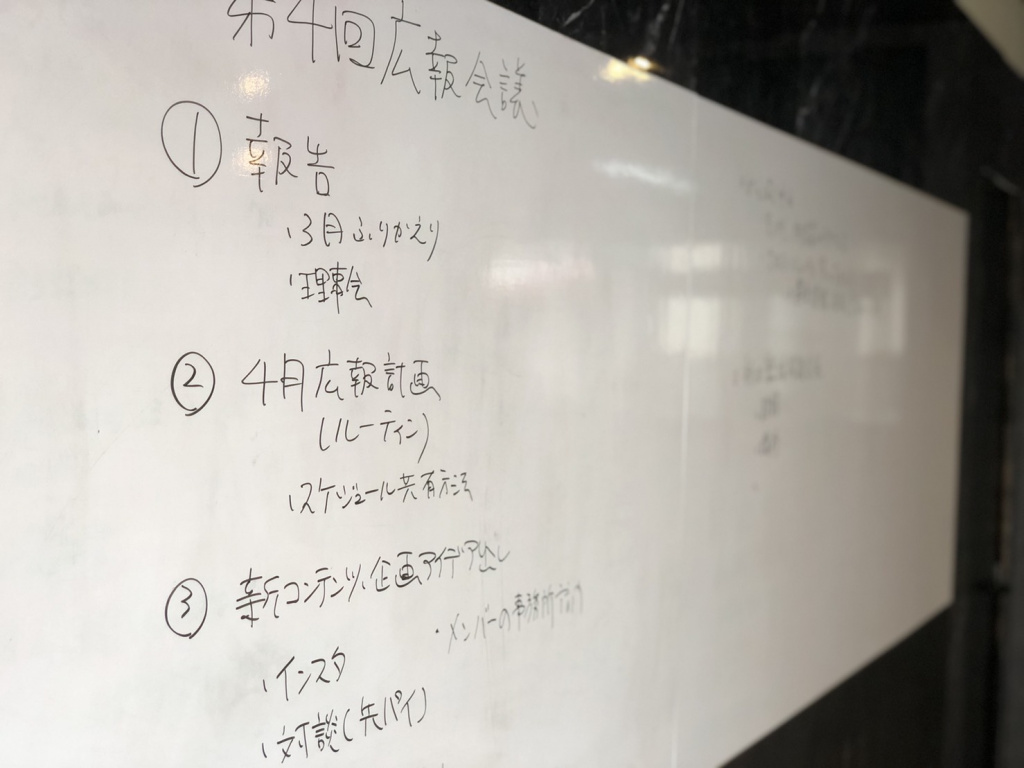 第4回広報会議
① 報告
・3月ふりかえり
・理事会
② 4月広報計画
(ルーティン)
・スケジュール共有方法
③ 新コンテンツ企画アイデア出し
・メンバーの事務所
・インスタ
・対談(先パイ)